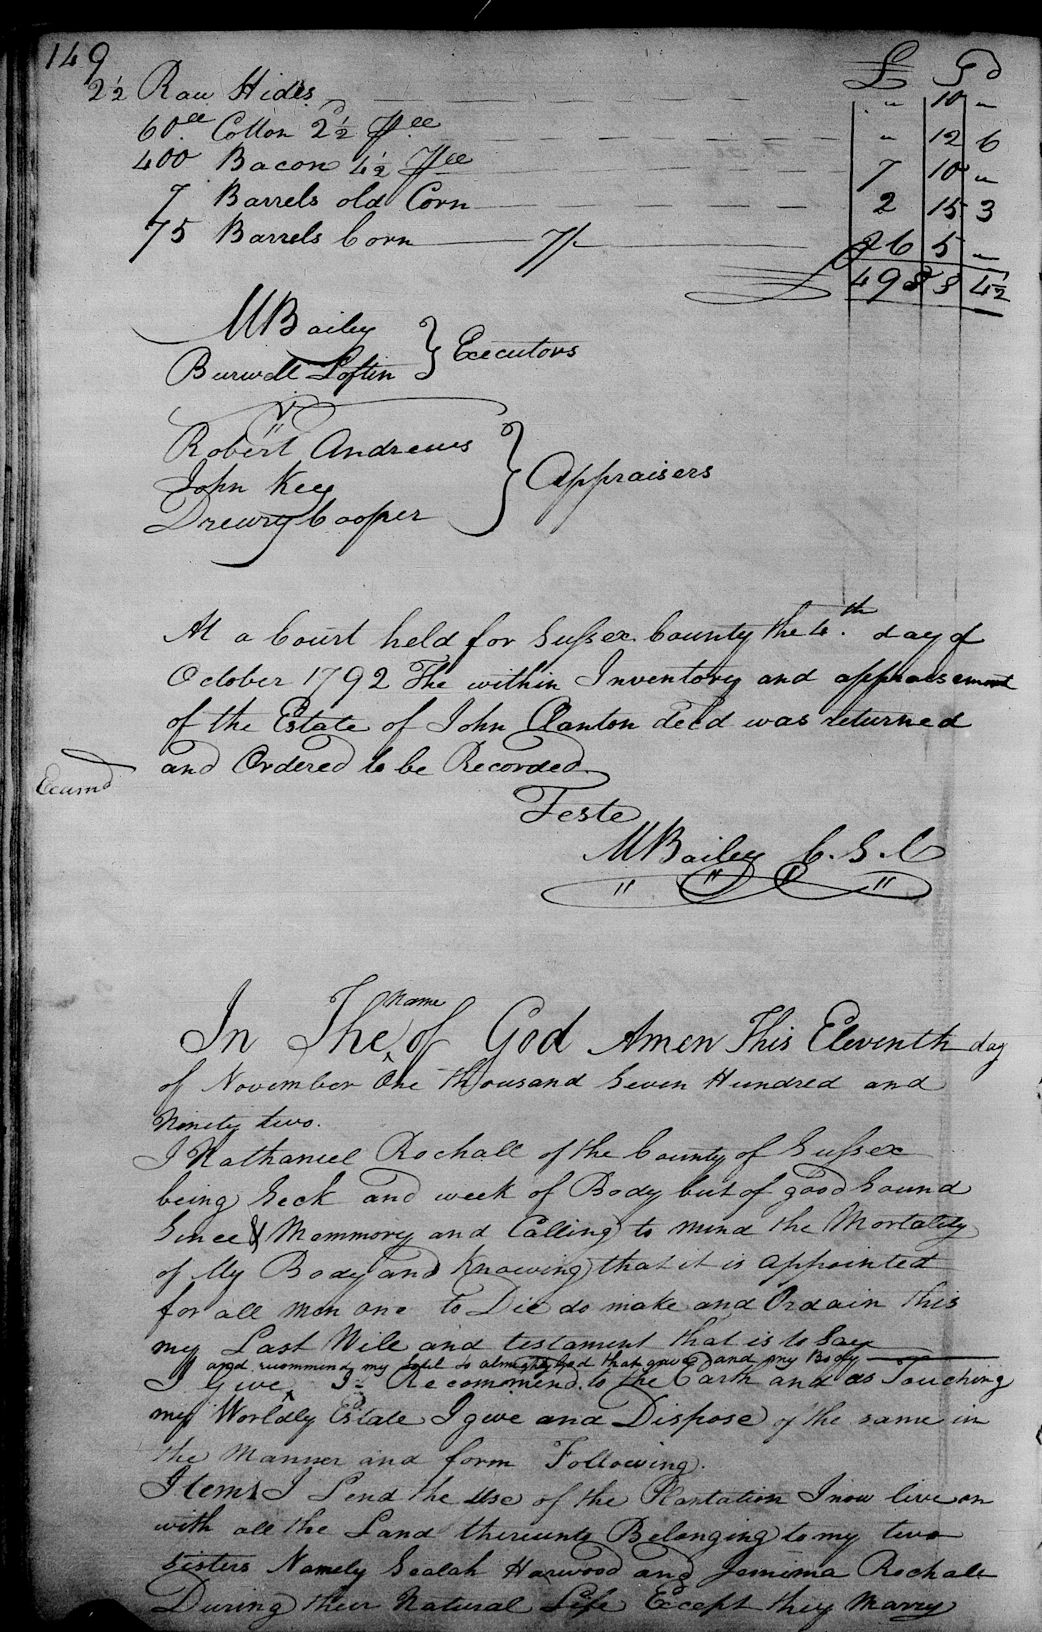 149
£ S d
2½ Raw Hides " 10 "
60 lb Cotton 2½d ⅌ lb " 12 6
400 Bacon 4½ ⅌ lb 7 10 "
7 Barrels old Corn 2 15 3
75 Barrels Corn 7/- 26 5 "
498 8 4½
MBailey
Burwell Loftin } Executors
Robert Andrews
John Key
Drewry Cooper } Appraisers
At a Court held for Sussex County the 4th. day of
October 1792 The within Inventory and appraisement
of the Estate of John Clanton decd was returned
and Ordered to be Recorded
Examd
Teste
MBailey C.S.C
In The name of God Amen This Eleventh day
of November One thousand Seven Hundred and
Ninety two.
I Nathaniel Rochall of the County of Sussex
being Seck and week of Body but of good Sound
Since & Memmory and Calling to mind the Mortality
of My Body and Knowing that it is appointed
for all men one to Die do make and Ordain this
my Last Will and testament that is to Say
and recommend my Soul to almighty God that gave and my Body
I Give I Recommend to the Earth and as Touching
my Worldly Estate I give and Dispose of the same in
the Manner and form Following.
Item 1 I Lend the Use of the Plantation I now live on
with all the Land thereunto Belonging to my two
sisters Namely Sealah Harwood and Jemima Rochall
During their Natural Life Except they Marry